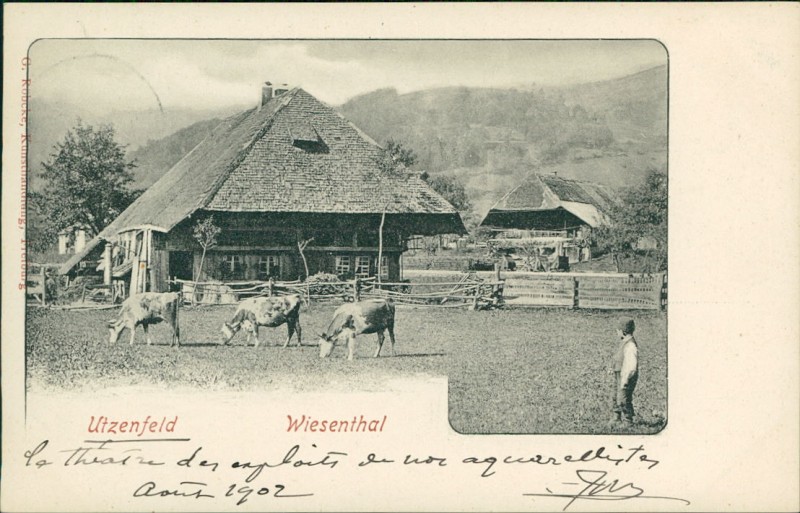 G. Röbcke, Kunsthandlung, Freiburg
Utzenfeld Wiesenthal
Le théâtre des exploits de nos aquarellistes
Août 1902